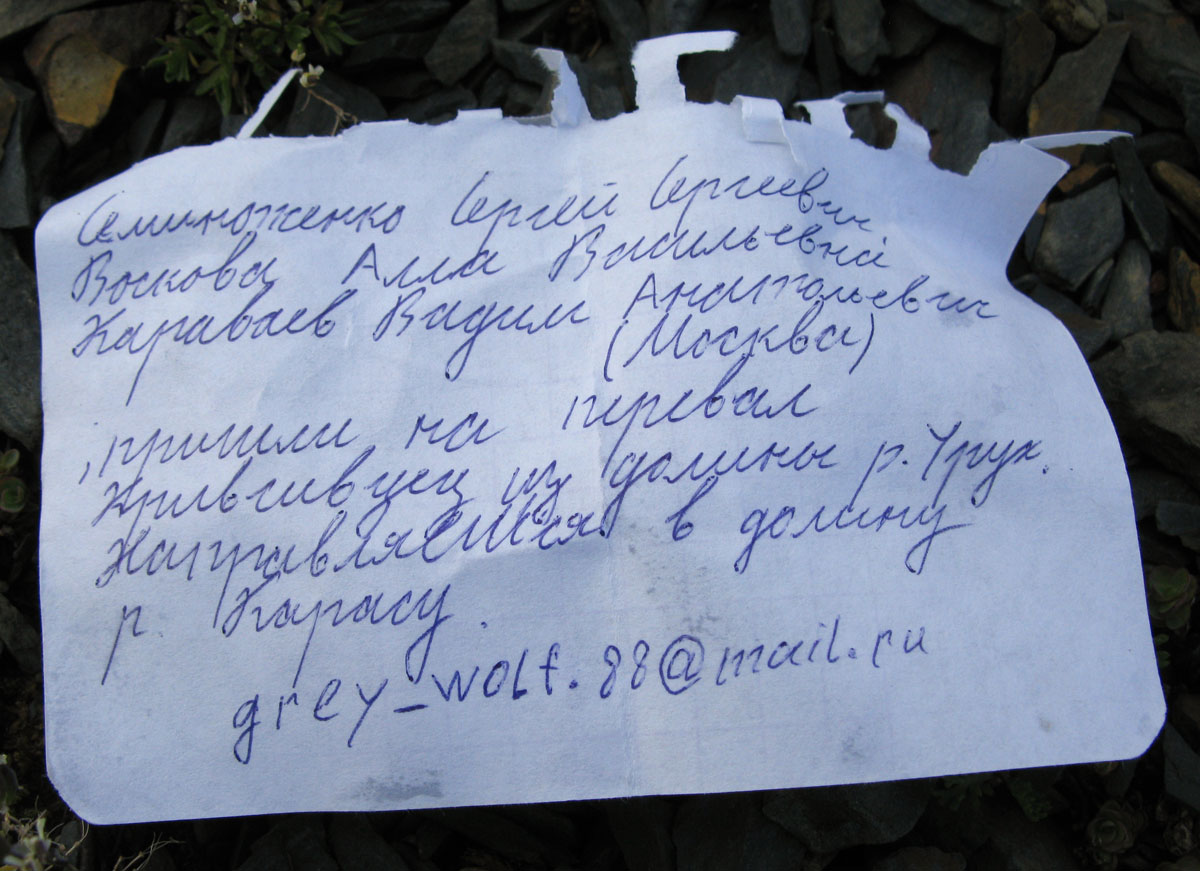 Семиноженко Сергей Сергеевич
Воскова Алла Васильевна
Караваев Вадим Анатольевич
(Москва)
, пришли на перевал
из долины р. Урух.
Направляемся в долину
р. Карасу.
grey_wolf.88@mail.ru